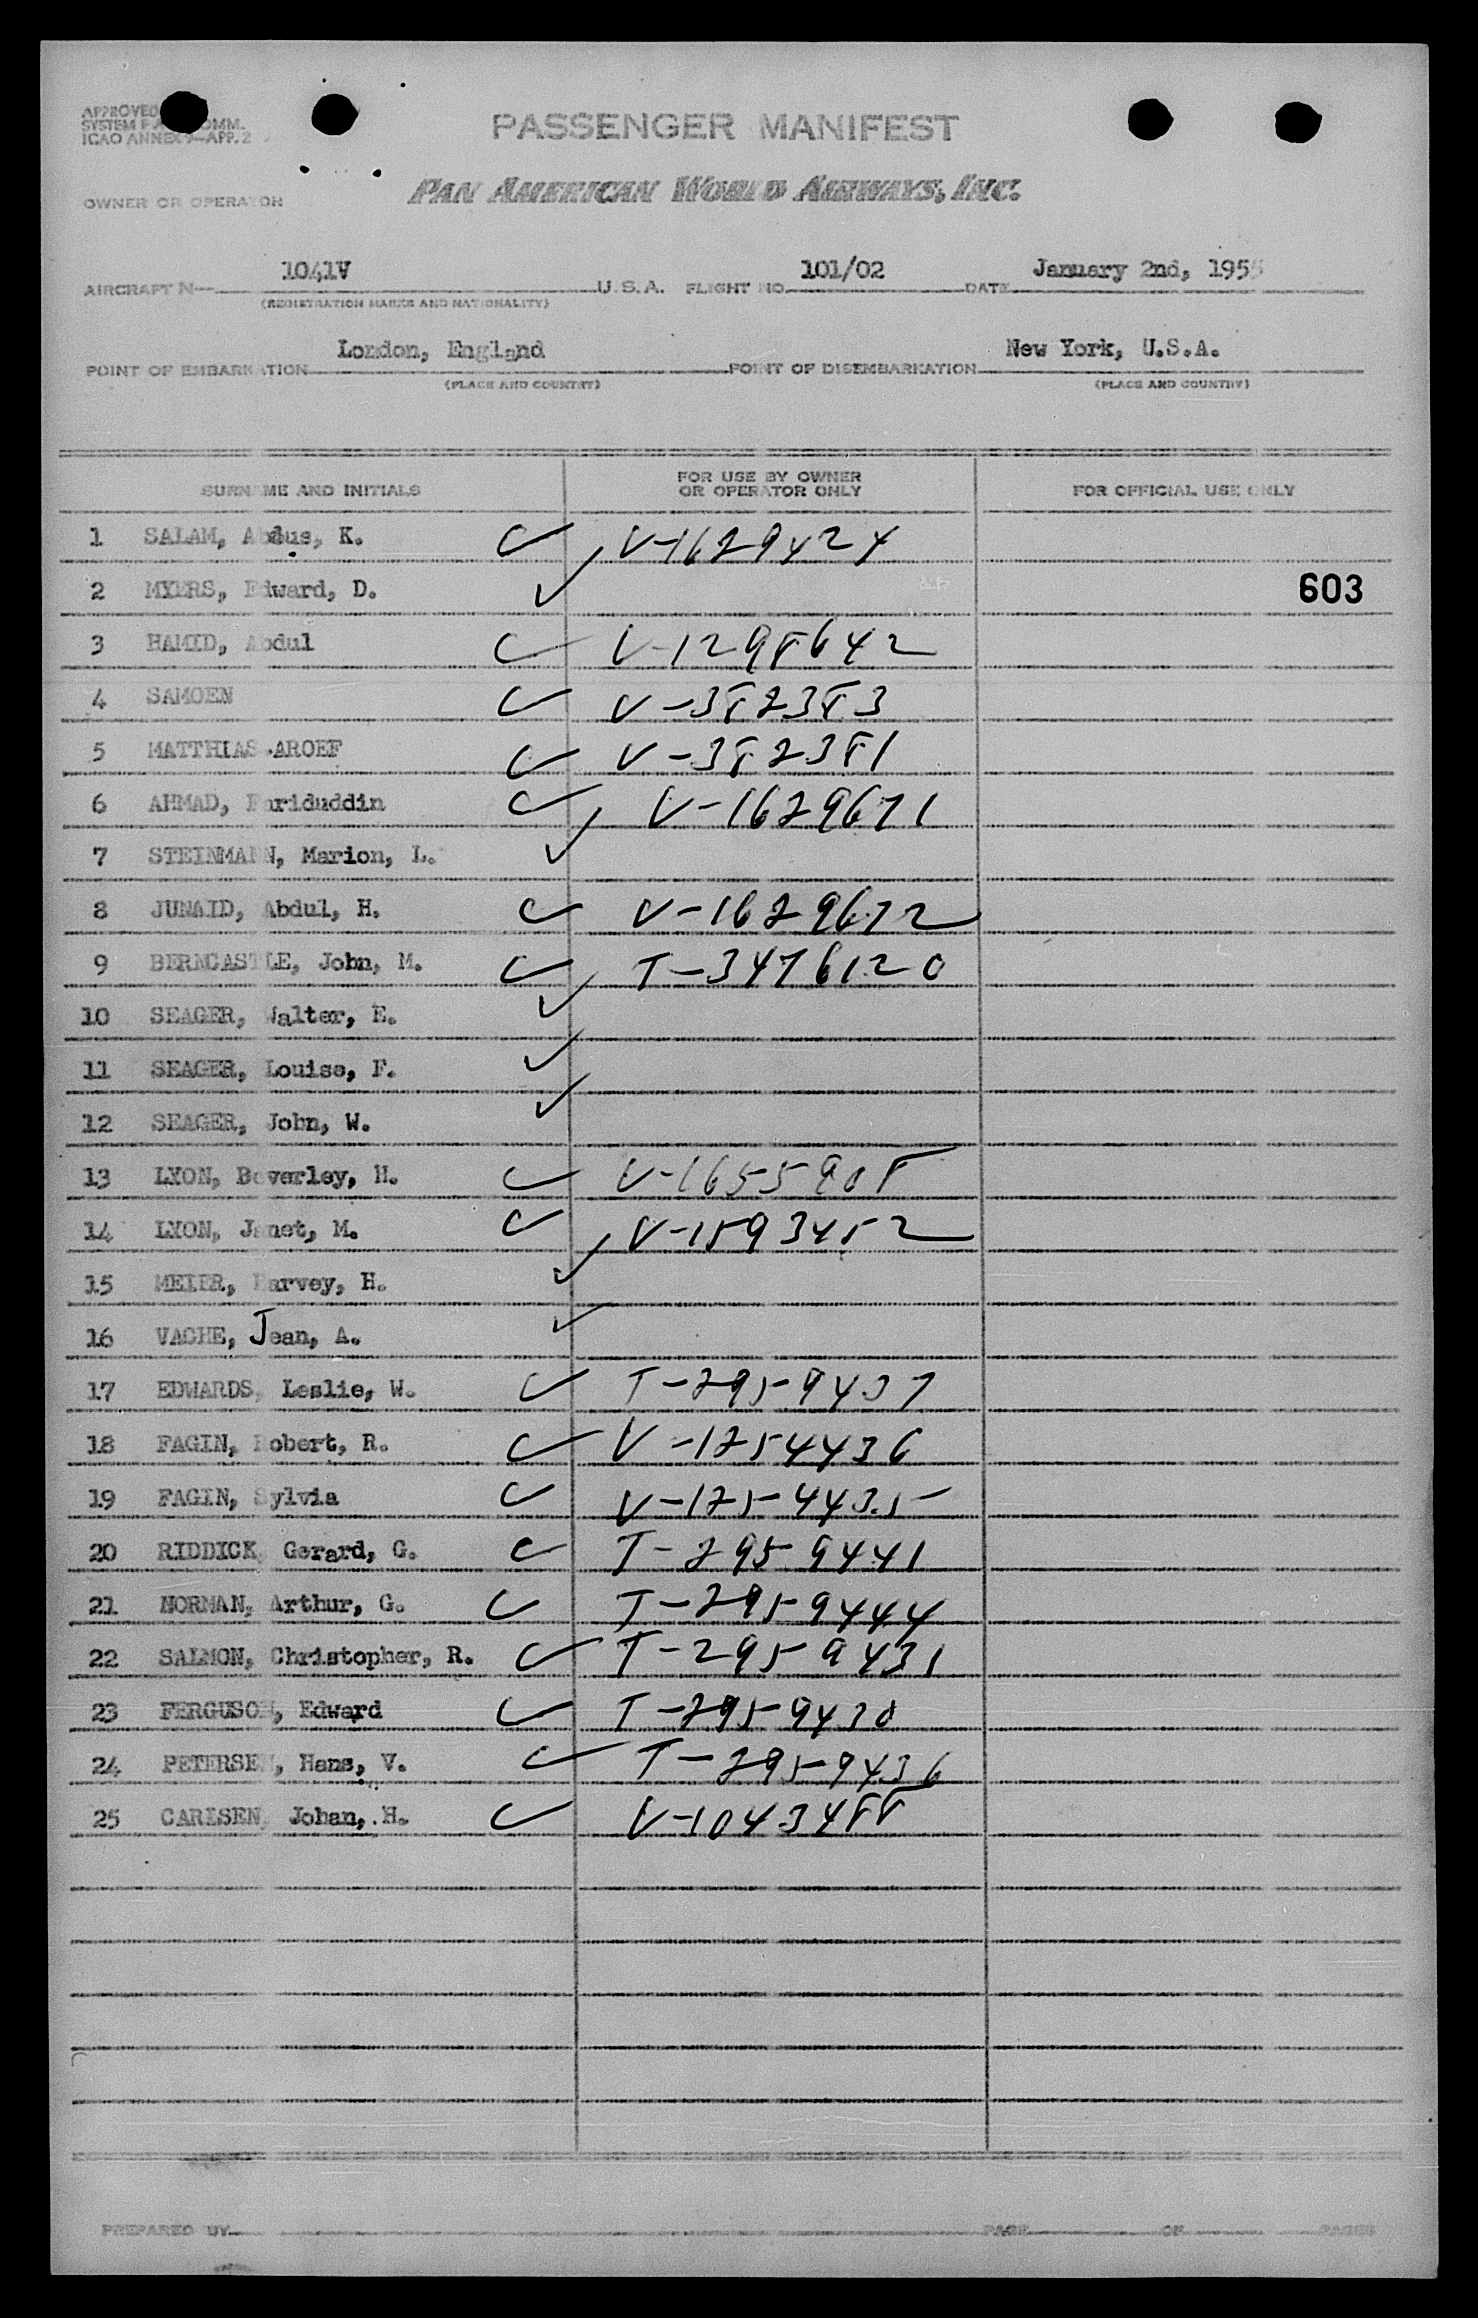 APPROVED
SYSTEM COMM.
ICAO ANNEX 9-APP. 2
PASSENGER MANIFEST
OWNER OR OPERATOR PAN AMERICAN WORLD AIRWAYS, INC.
AIRCRAFT N- 1041V U.S.A. FLIGHT NO. 101/02 DATE January 2nd, 1955
(REGISTRATION MARKS AND NATIONALITY)
POINT OF EMBARKATION London, England POINT OF DISEMBARKATION New York, U.S.A.
(PLACE AND COUNTRY) (PLACE AND COUNTRY)
SURNAME AND INITIALS FOR USE BY OWNER OR OPERATOR ONLY FOR OFFICIAL USE ONLY
1 SALAM, Abdus, K. V-1629424
2 MYERS, Edward, D. 603
3 HAMID, Abdul V-1298642
4 SAMOEN V-382383
5 MATTHIAS AROEF V-382381
6 AHMAD, Fariduddin V-1629671
7 STEINMANN, Marion, L.
8 JUNAID, Abdul, H. V-1629672
9 BERNCASTLE, John, M. T-3476120
10 SEAGER, Walter, E.
11 SEAGER, Louise, F.
12 SEAGER, John, W.
13 LYON, Beverley, H. V-1655908
14 LYON, Janet, M. V-1593452
15 MEIER, Harvey, H.
16 VACHE, Jean, A.
17 EDWARDS, Leslie, W. T-2959437
18 FAGIN, Robert, R. V-1254436
19 FAGIN, Sylvia V-1254435
20 RIDDICK, Gerard, G. T-2959441
21 NORMAN, Arthur, G. T-2959444
22 SALMON, Christopher, R. T-2959431
23 FERGUSON, Edward T-2959430
24 PETERSEN, Hans, V. T-2959436
25 CARLSEN, Johan, H. V-1043488
PREPARED BY PAGE OF PAGES